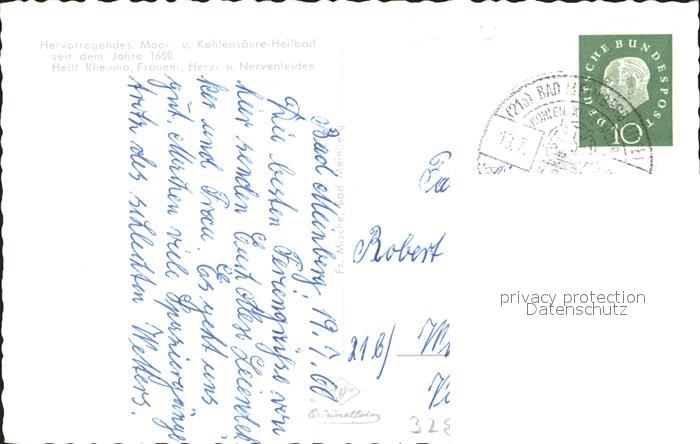 Hervorragendes Moor- u. Kohlensäure-Heilbad
seit dem Jahre 1650
Heilt Rheuma, Frauen-, Herz- u. Nervenleiden
Bad Meinberg, 19.7.60.
Die besten Feriengrüße von
hier senden Euch Otto
ker und Frau. Es geht uns
gut. Machen viele Spaziergänge
trotz des schlechten Wetters.
Fr. Mische, Bad Meinberg
Originalfoto
DEUTSCHE BUNDESPOST
10
(21a) BAD
Fa
Robert
21b/
328
privacy protection
Datenschutz